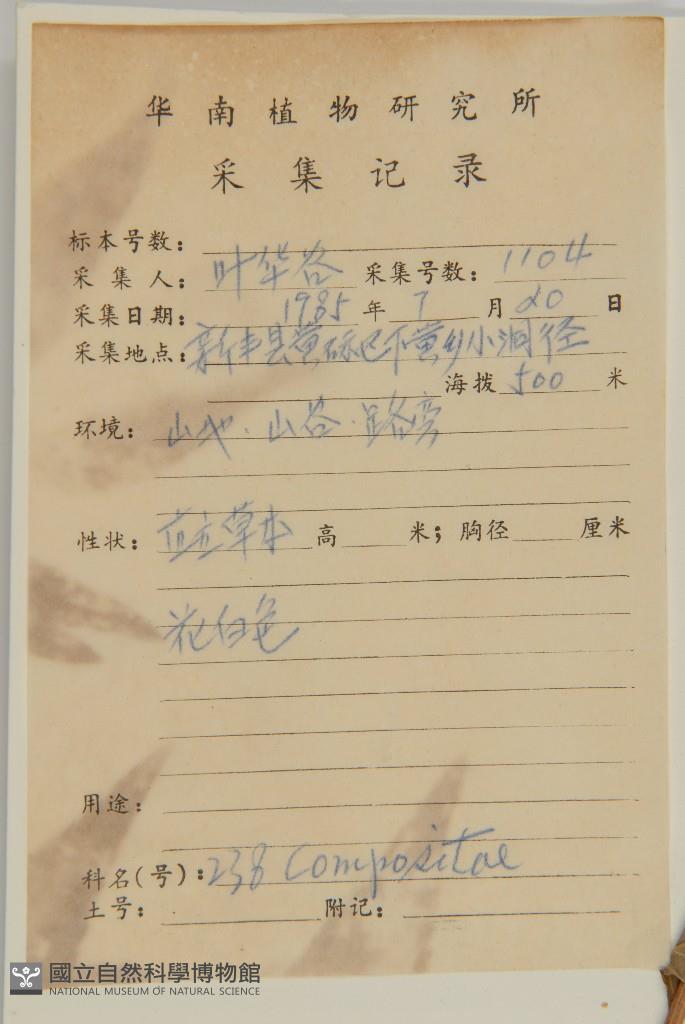 华南植物研究所
采集记录
标本号数：
采集人：叶华谷 采集号数：1104
采集日期：1985年7月20日
采集地点：新丰县黄磜区下黄乡小洞径
海拨500米
环境：山地.山谷.路旁
性状：直立草本高 米；胸径 厘米
花白色
用途：
科名(号)：238 Compositae
土号： 附记：
國立自然科學博物館
NATIONAL MUSEUM OF NATURAL SCIENCE